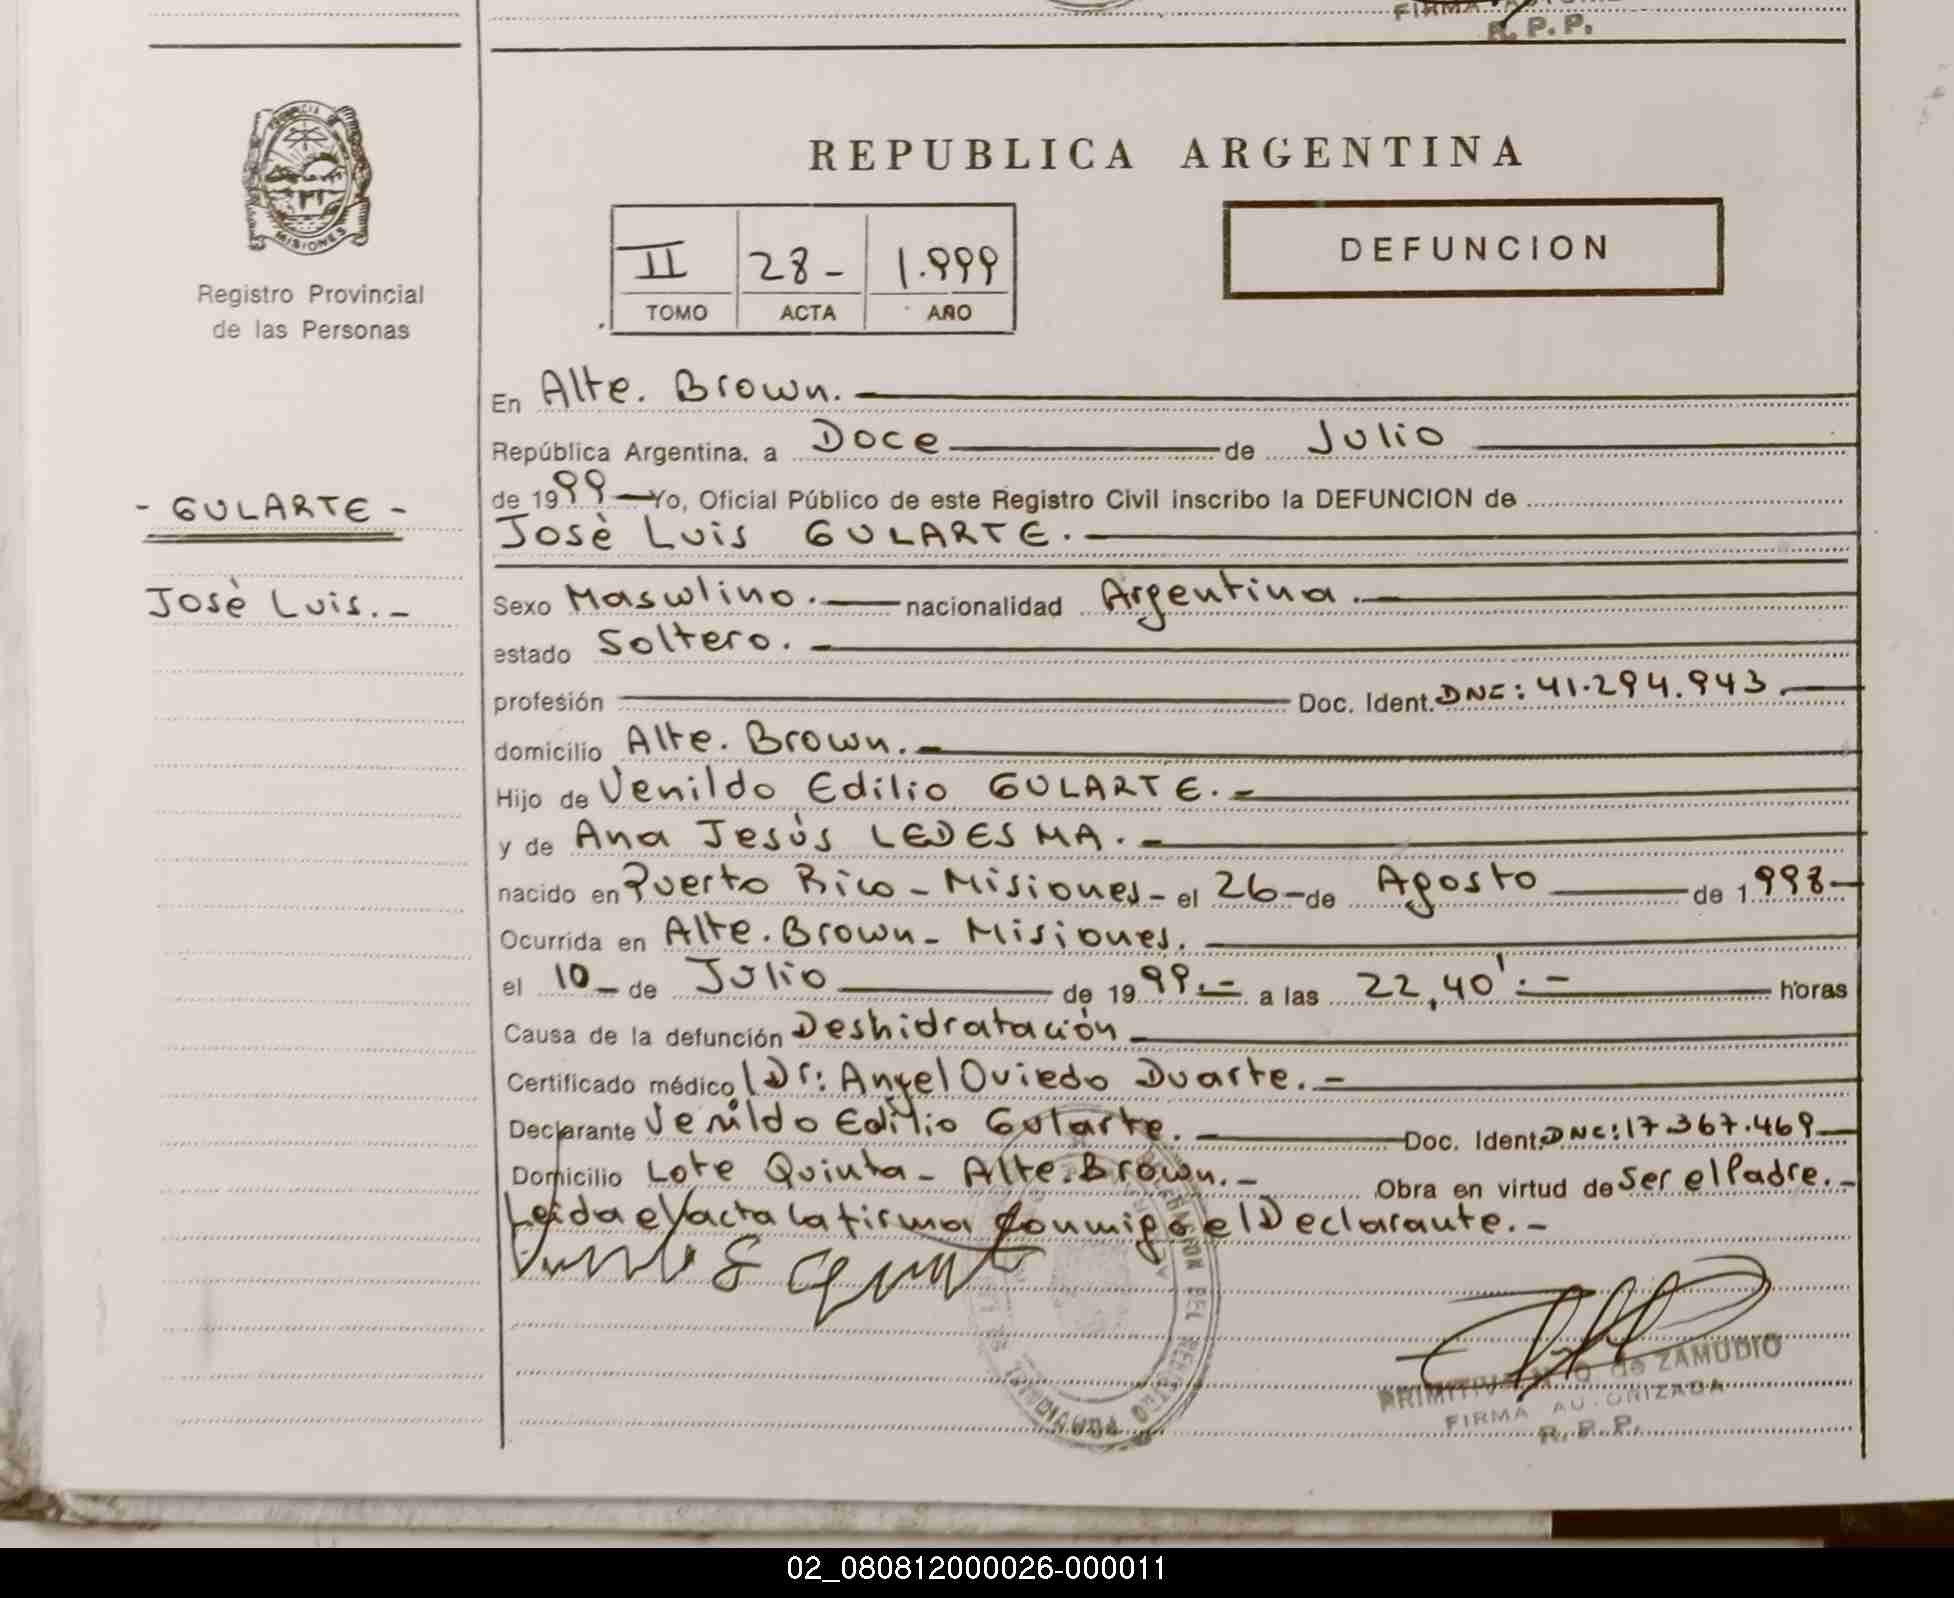 FIRMA
R. P. P.
PROVINCIA
MISIONES
Registro Provincial
de las Personas
REPUBLICA ARGENTINA
DEFUNCION
II 28- 1.999
TOMO ACTA AÑO
En Alte. Brown.
República Argentina, a Doce de Julio
de 1999 Yo, Oficial Público de este Registro Civil inscribo la DEFUNCION de
- GULARTE -
José Luis GULARTE.
José Luis.-
Sexo Masculino. nacionalidad Argentina.
estado Soltero.
profesión Doc. Ident. DNI: 41.294.943.
domicilio Alte. Brown.
Hijo de Venildo Edilio GULARTE.-
y de Ana Jesús LEDESMA.-
nacido en Puerto Rico - Misiones - el 26 - de Agosto de 1998-
Ocurrida en Alte. Brown - Misiones.
el 10 - de Julio de 1999.- a las 22,40'.- horas
Causa de la defunción Deshidratación
Certificado médico Dr: Angel Oviedo Duarte.-
Declarante Venildo Edilio Gularte. Doc. Ident. DNI: 17.367.469
Domicilio Lote Quinta - Alte. Brown.- Obra en virtud de Ser el Padre.-
Leida el acta la firma conmigo el Declarante.-
PROVINCIAL
DEL REGISTRO
de ZAMUDIO
FIRMA AUTORIZADA
R. P. P.
02_080812000026-000011